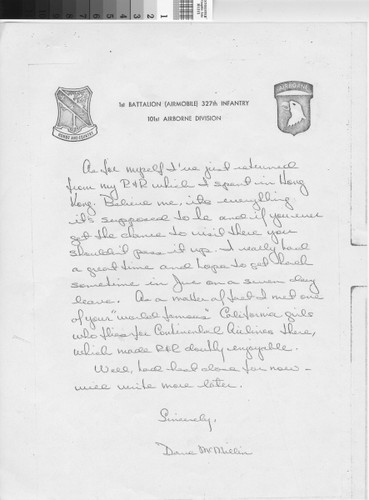 1st BATTALION (AIRMOBILE) 327th INFANTRY
101st AIRBORNE DIVISION
AIRBORNE
HONOR AND COUNTRY
As for myself I've just returned
from my R+R which I spent in Hong
Kong. Believe me, its everything
it's supposed to be and if you ever
get the chance to visit there you
shouldn't pass it up. I really had
a great time and hope to get back
sometime in June on a seven day
leave. As a matter of fact I met one
of your "world famous" California girls
who flies for Continental Airlines there,
which made R&R doubly enjoyable.
Well, that's about all for now -
will write more later.
Sincerely,
Dave McMillin